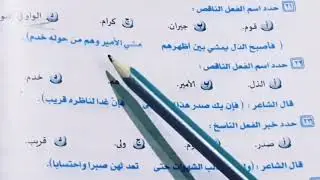 ٢١ حدد اسم الفعل الناقص:
أ قوم. ب جيران. ج كرام. د الواو
( فأصبح الذل يمشي بين أظهرهم مشي الأمير وهم من حوله خدم).
٢٢ حدد اسم الفعل الناقص:
أ الذل. ب الأمير. خدم.
قال الشاعر: ( فإن يك صدر هذا فإن غدا لناظره قريب).
٢٣ حدد خبر الفعل الناسخ:
أ صدر. ب اليوم. ج ولى. د قريب.
قال الشاعر: ( الشهوات حتى تعد لهن صبرا واحتسابا).